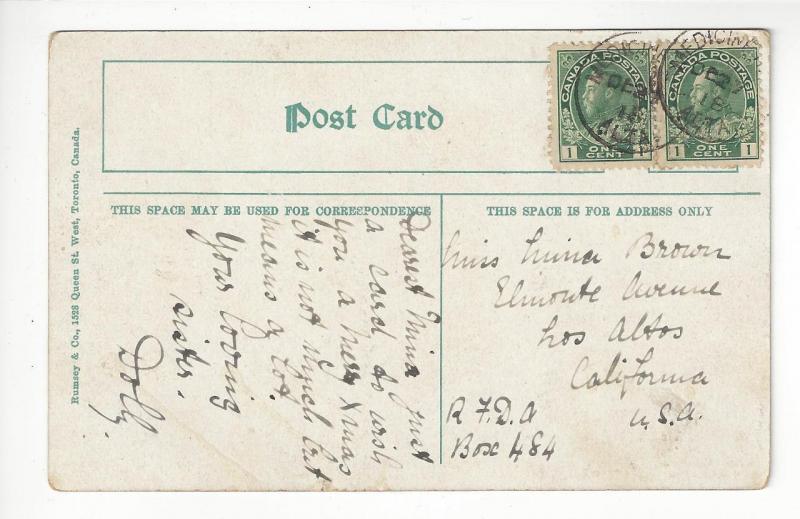 Post Card
CANADA POSTAGE
1 ONE CENT 1
CANADA POSTAGE
1 ONE CENT 1
MEDICINE
DE
ALTA
MEDICINE
DE 27
18
ALTA
THIS SPACE MAY BE USED FOR CORRESPONDENCE
THIS SPACE IS FOR ADDRESS ONLY
Rumsey & Co., 1528 Queen St. West, Toronto, Canada.
Dearest Mina just
a card to wish
you a Merry Xmas
it is not much but
means a lot.
Your loving
sister.
Dolly.
Miss Mina Brown
Elmonte Avenue
Los Altos
California
U.S.A.
R F D A
Box 484